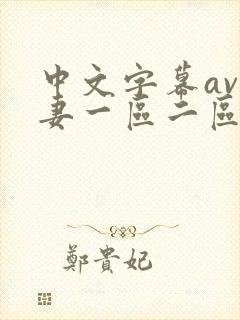 中文字幕av
妻一區二區
鄭貴妃